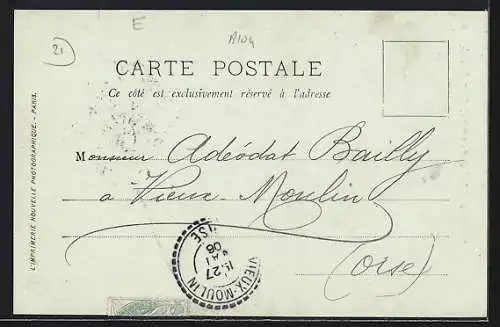 21
E
CARTE POSTALE
Ce côté est exclusivement réservé à l'adresse
Monsieur Adéodat Bailly
à Vieux-Moulin
(Oise)
VIEUX-MOULIN
OISE
15-27
MAI
08
L'IMPRIMERIE NOUVELLE PHOTOGRAPHIQUE. - PARIS.